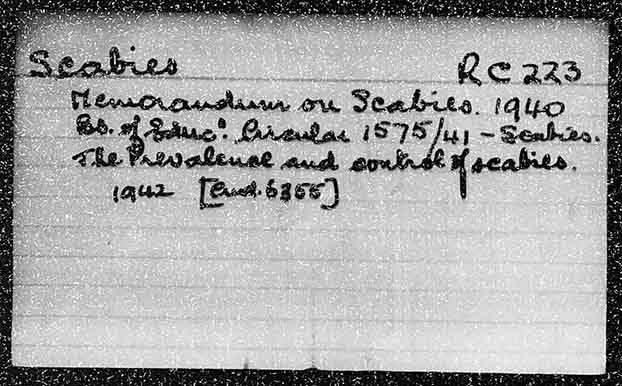 Scabies RC 223
Memorandum on Scabies. 1940
Bd. of Educⁿ. Circular 1575/41 - Scabies.
The Prevalence and control of scabies.
1942 [Cmd. 6355]